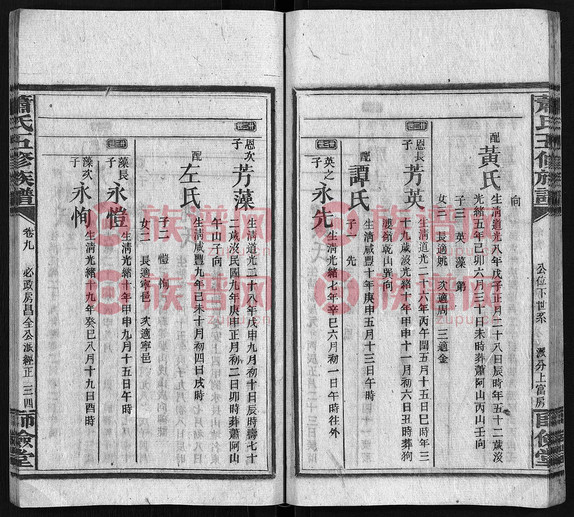 蕭氏五修族譜
公位下世系
派分上富房
師儉堂
向
配
黃氏
生清道光八年戊子正月二十八日辰時年五十二歲沒
光緒五年己卯六月三十日未時葬蕭阿山丙山壬向
子三 英 藻 弟
女三 長適姚 次適周 三適金
恩長子
芳英
生清道光二十六年丙午閏五月十五日巳時年三
十九歲沒光緒十年甲申十一月六日丑時葬狗
婆嶺乾山巽向
配
譚氏
生清咸豐十年庚申五月十三日午時
子一 先
英之子
永先
生清光緒七年辛巳六月初一日午時往外
恩次子
芳藻
生清道光二十八年戊申九月初十日辰時壽七十
七歲沒民國九年庚申正月初二日卯時葬蕭阿山
午山子向
配
左氏
生清咸豐九年己未十月初四日戌時
子二 愷 恂
女二 長適寧邑 次適寧邑
藻長子
永愷
生清光緒十年甲申九月十五日午時
藻次子
永恂
生清光緒十九年癸巳八月十九日酉時
蕭氏五修族譜
卷九
必政房昌全公派經正
三四
師儉堂
族譜网